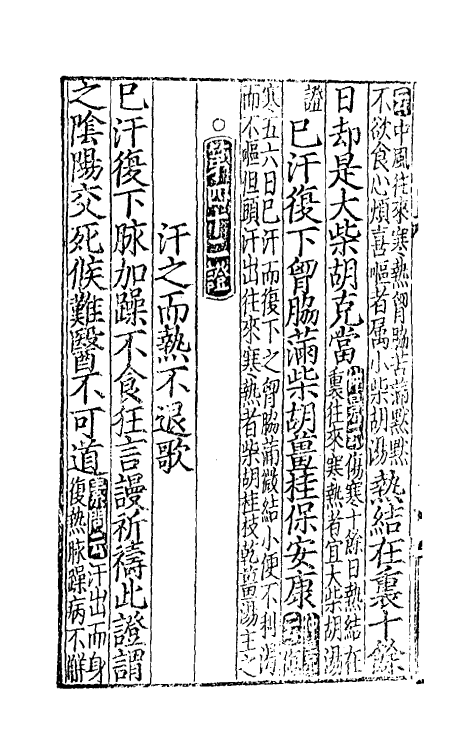 中風往來寒熱胷脇苦滿黙黙
不欲食心煩喜嘔者屬小柴胡湯
熱結在裏十餘
日却是大柴胡克當
傷寒十餘日熱結在
裏往來寒熱者宜大柴胡湯
證
已汗復下胷脇滿柴胡薑桂保安康
寒五六日已汗而復下之胷脇滿微結小便不利渴
而不嘔但頭汗出往來寒熱者柴胡桂枝乾薑湯主之
○第四十三證
汗之而熱不退歌
已汗復下脉加躁不食狂言謾祈禱此證謂
之陰陽交死候難醫不可道
素問云汗出而身
復熱脉躁病不解